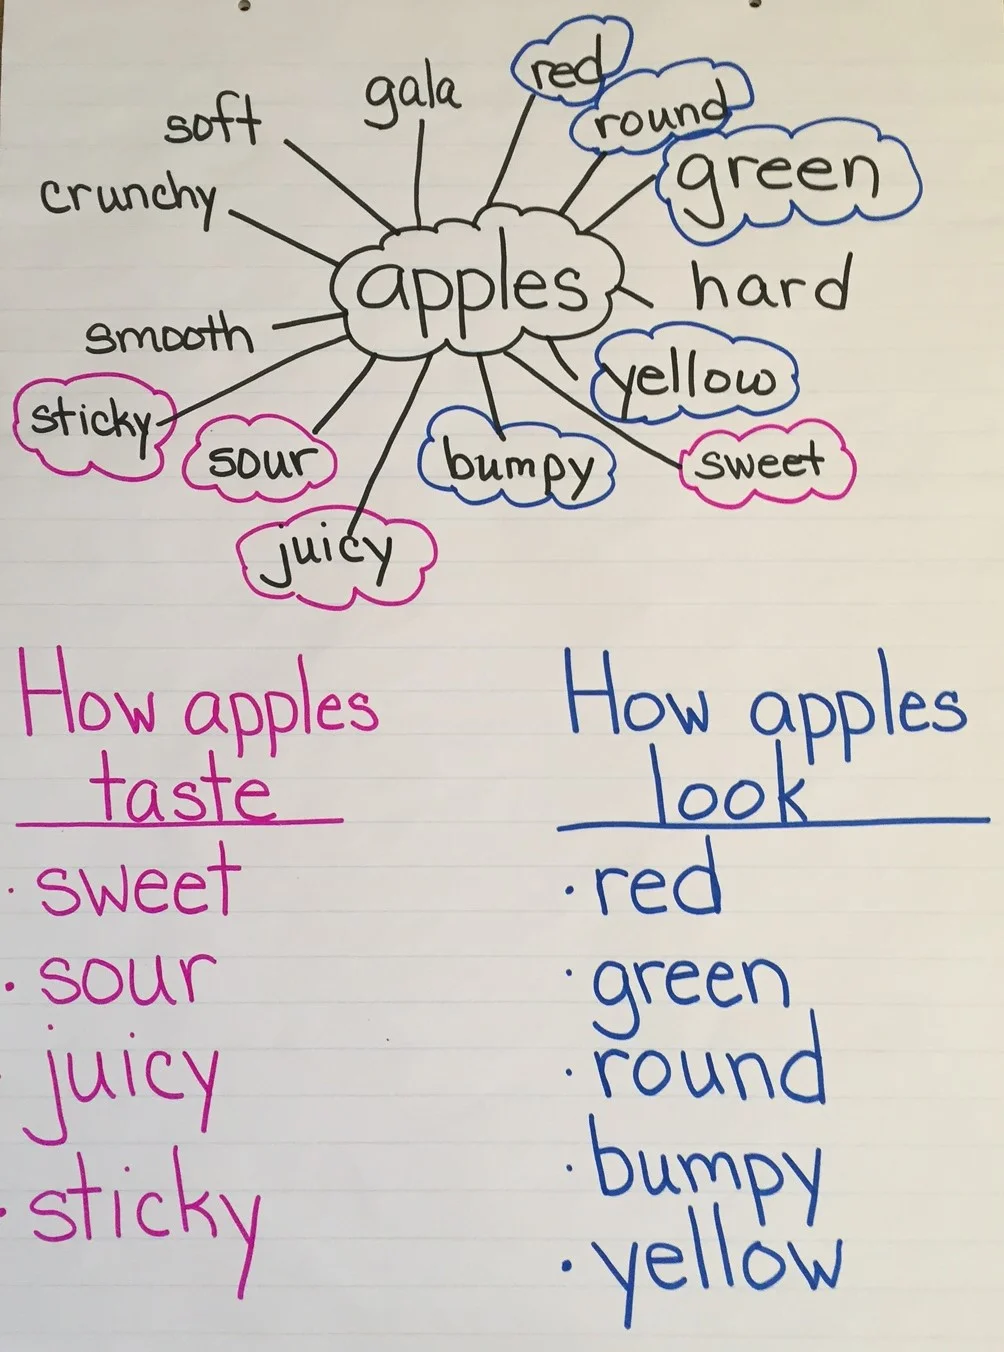 gala
red
soft
round
crunchy
green
apples
hard
smooth
yellow
sticky
sour
bumpy
sweet
juicy
How apples
taste
· sweet
· sour
· juicy
· sticky
How apples
look
· red
· green
· round
· bumpy
· yellow